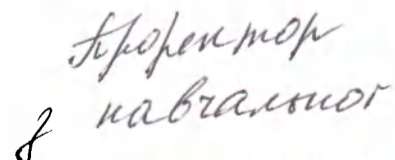 Проректор
навчальног